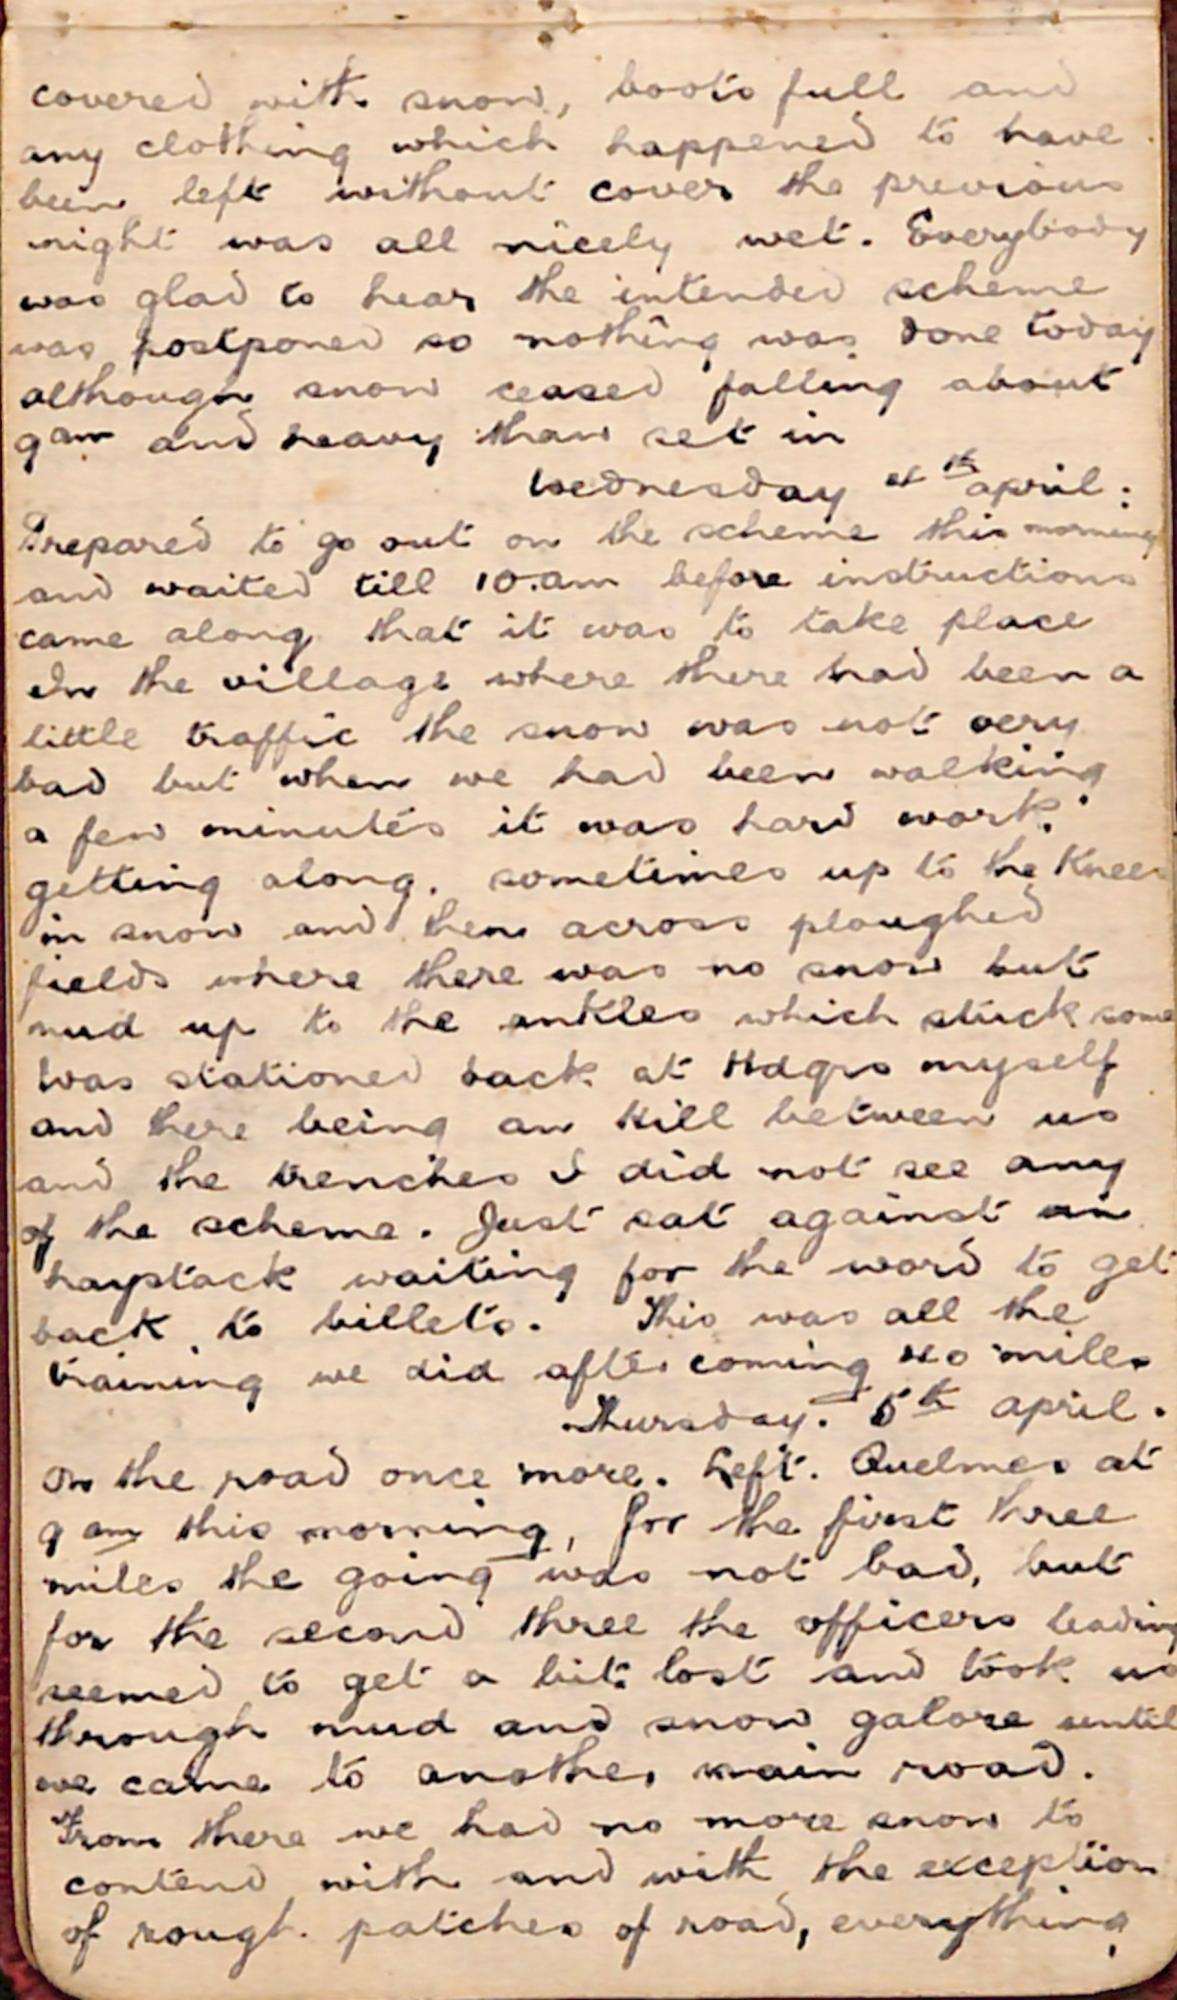 covered with snow, boots full and
any clothing which happened to have
been left without cover the previous
night was all nicely wet. Everybody
was glad to hear the intended scheme
was postponed so nothing was done today
although snow ceased falling about
9 am and heavy thaw set in
Wednesday 4th april.
Prepared to go out on the scheme this morning
and waited till 10.am before instructions
came along that it was to take place
In the village where there had been a
little traffic the snow was not very
bad but when we had been walking
a few minutes it was hard work.
getting along. sometimes up to the Knees
in snow and then across ploughed
fields where there was no snow but
mud up to the ankles which stuck some
Was stationed back at Hdqrs myself
and there being an hill between us
and the trenches I did not see any
of the scheme. Just sat against an
haystack waiting for the word to get
back to billets. This was all the
training we did after coming miles
Thursday. 5th april.
On the road once more. Left. Quelmes at
9 am this morning, for the first three
miles the going was not bad, but
for the second three the officers leading
seemed to get a bit lost and took us
through mud and snow galore until
we came to another main road.
From there we had no more snow to
contend with and with the exception
of rough patches of road, everything